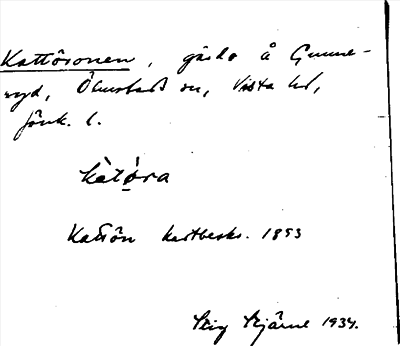 Kattöronen, gärde å Gunne-
ryd, Ölmstads sn, Vista hd,
Jönk. l.
kàtǿra
Kattön kartbeskr. 1853
Stig Stjärne 1934.